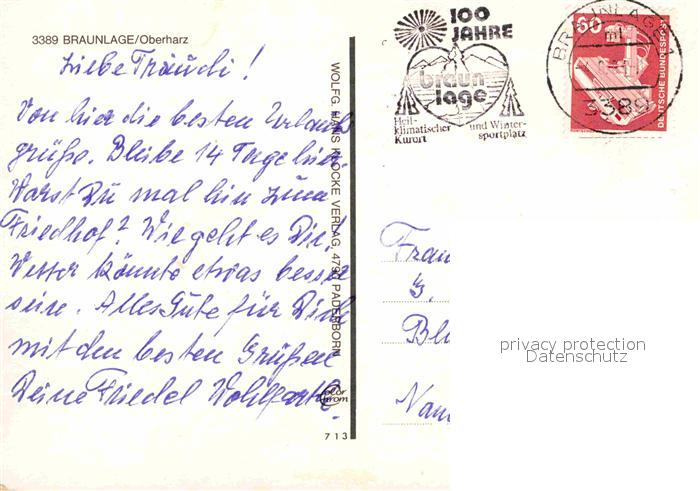 3389 BRAUNLAGE/Oberharz
Liebe Traudi!
Von hier die besten Urlaubs
grüße. Bleibe 14 Tage hier.
Warst Du mal hin zum
Friedhof? Wie geht es Dir.
Wetter könnte etwas besser
sein. Alles Gute für Dich
mit den besten Grüßen
Deine Friedel Wohlfarth.
WOLFG. HANS KLOCKE VERLAG, 4790 PADERBORN
color
chrom
713
100
JAHRE
braun
lage
Heil-
klimatischer
Kurort
und Winter-
sportplatz
BRAUNLAGE 1
3389
60
DEUTSCHE BUNDESPOST
Frau
G.
Bl
Nau
privacy protection
Datenschutz